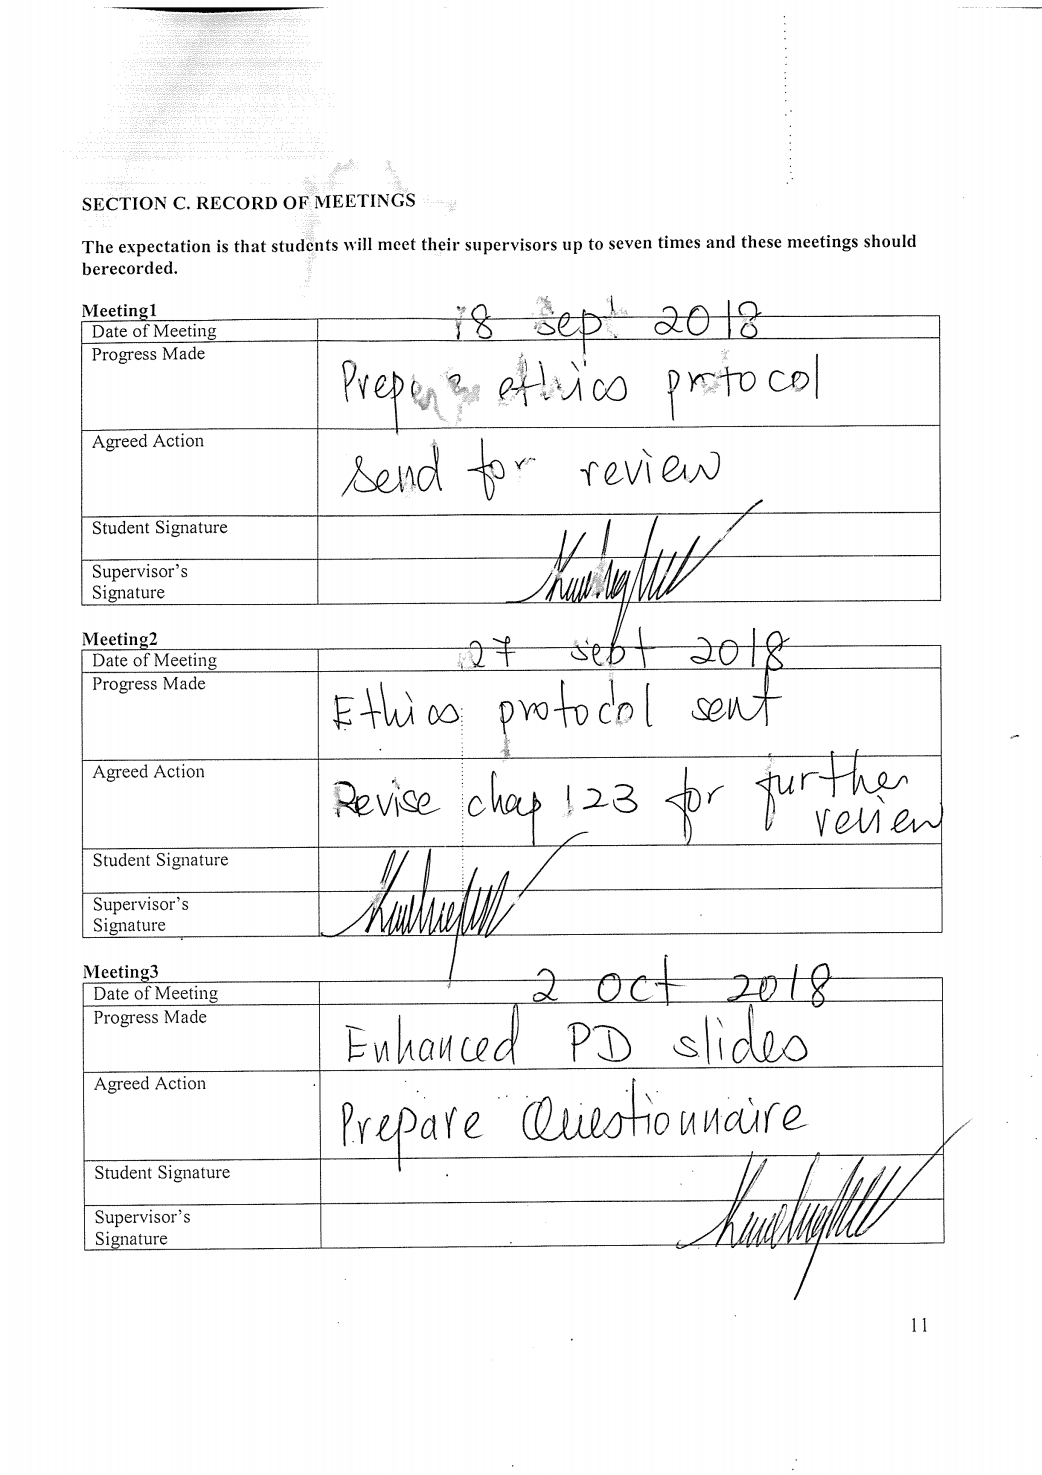 SECTION C. RECORD OF MEETINGS
The expectation is that students will meet their supervisors up to seven times and these meetings should
berecorded.
Meeting1
Date of Meeting 18 Sept 2018
Progress Made
ethics protocol
Agreed Action
Send for review
Student Signature
Supervisor's
Signature
Meeting2
Date of Meeting 27 sept 2018
Progress Made
Ethics protocol sent
Agreed Action
Revise chap 123 for further
review
Student Signature
Supervisor's
Signature
Meeting3
Date of Meeting 2 Oct 2018
Progress Made
Enhanced PD slides
Agreed Action
Prepare Questionnaire
Student Signature
Supervisor's
Signature
11